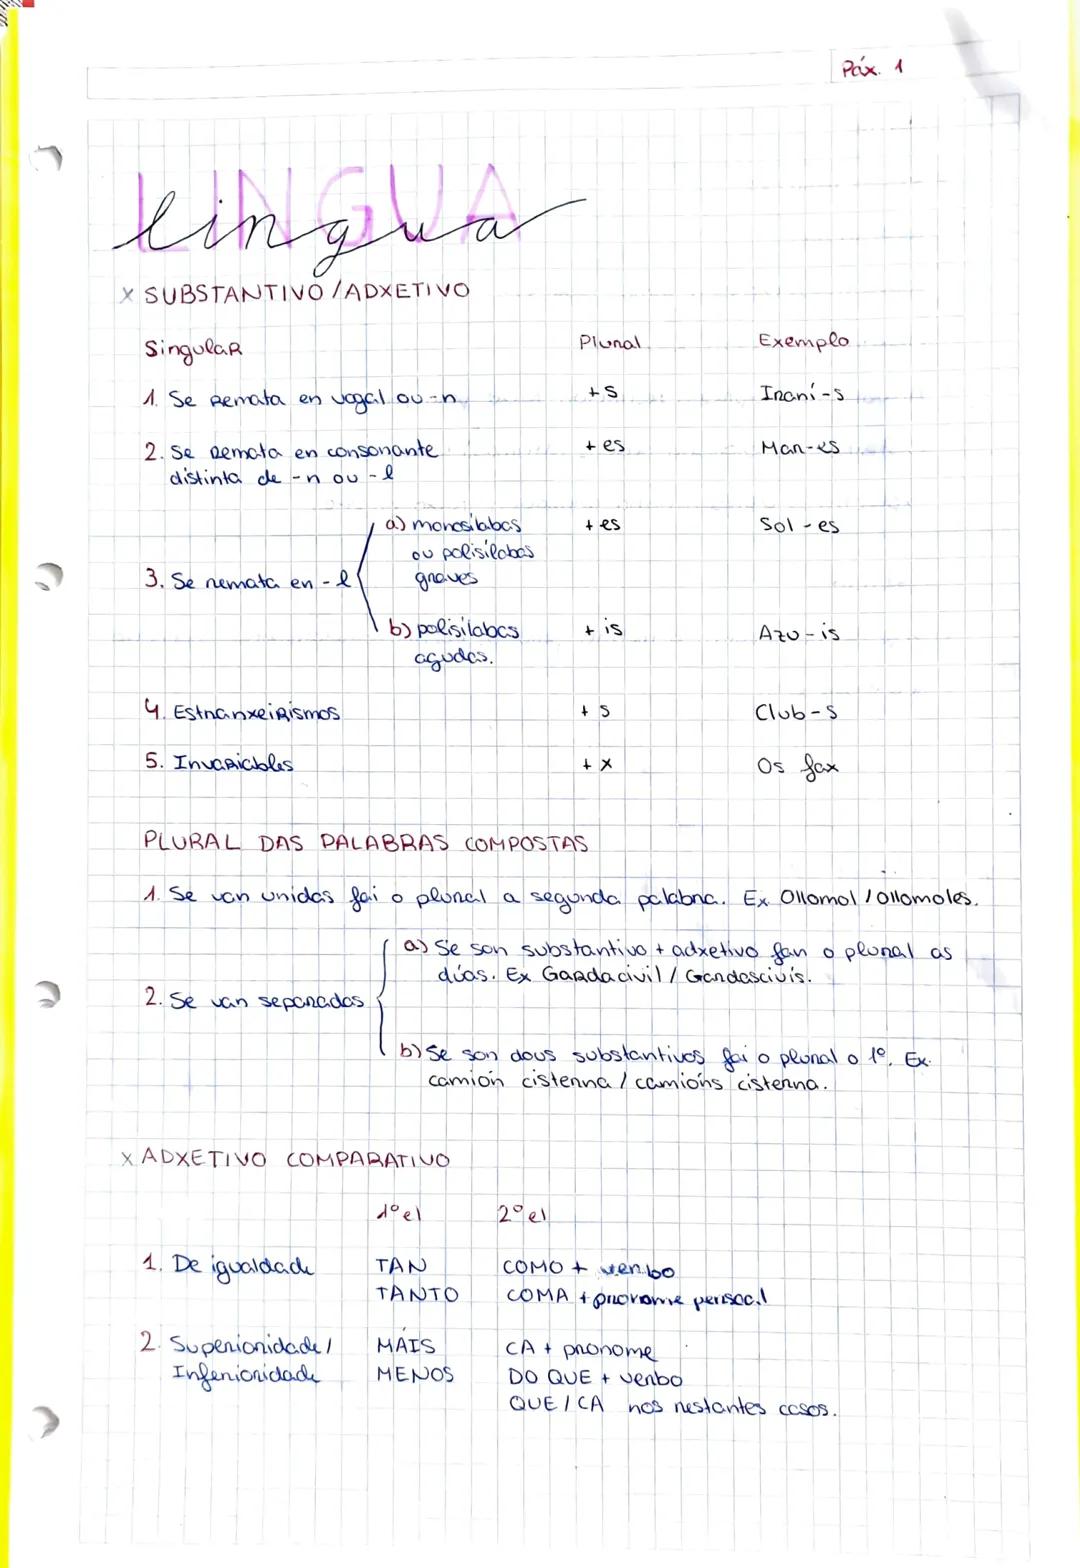 Páx. 1
LINGUA
lingua
x SUBSTANTIVO/ADXETIVO
Singular Plural Exemplo
1. Se remata en vogal ou -n +s Iraní-s
2. Se remata en consonante +es Mar-es
distinta de -n ou -l
3. Se remata en -l
a) monosílabas +es Sol-es
ou polisílabas
graves
b) polisílabas +is Azu-is
agudas.
4. Estranxeirismos +s Club-s
5. Invariables +x Os fax
PLURAL DAS PALABRAS COMPOSTAS
1. Se van unidas fai o plural a segunda palabra. Ex Ollomol/ollomoles.
2. Se van separadas
a) Se son substantivo + adxetivo fan o plural as
dúas. Ex Garda civil / Gardas civís.
b) Se son dous substantivos fai o plural o 1º. Ex.
camión cisterna / camións cisterna.
x ADXETIVO COMPARATIVO
1º el 2º el
1. De igualdade TAN COMO + verbo
TANTO COMA + pronome persoal
2. Superioridade/ MÁIS CA + pronome
Inferioridade MENOS DO QUE + verbo
QUE / CA nos restantes casos.